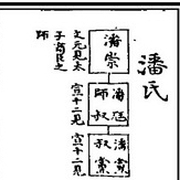 潘氏
潘崇
文元見太
子商臣之
師
潘尫
師叔
宣十二見
潘黨
叔黨
宣十二見